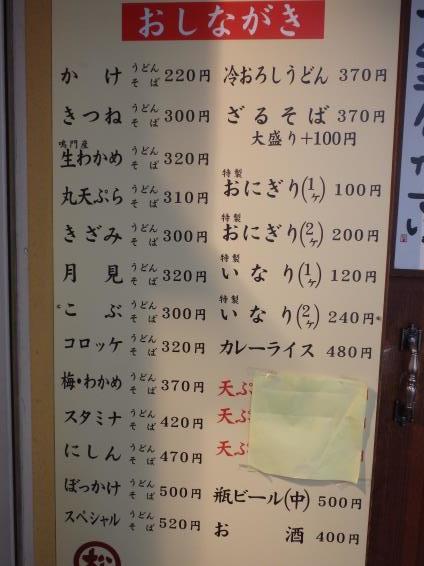 おしながき
かけ うどん そば 220円
きつね うどん そば 300円
鳴門産
生わかめ うどん そば 320円
丸天ぷら うどん そば 310円
きざみ うどん そば 300円
月見 うどん そば 320円
こぶ うどん そば 300円
コロッケ うどん そば 320円
梅・わかめ うどん そば 370円
スタミナ うどん そば 420円
にしん うどん そば 470円
ぼっかけ うどん そば 500円
スペシャル うどん そば 520円
冷おろしうどん 370円
ざるそば 370円
大盛り+100円
特製
おにぎり(1ヶ) 100円
特製
おにぎり(2ヶ) 200円
特製
いなり(1ヶ) 120円
特製
いなり(2ヶ) 240円
カレーライス 480円
天ぷ
天ぷ
天ぷ
瓶ビール(中) 500円
お酒 400円